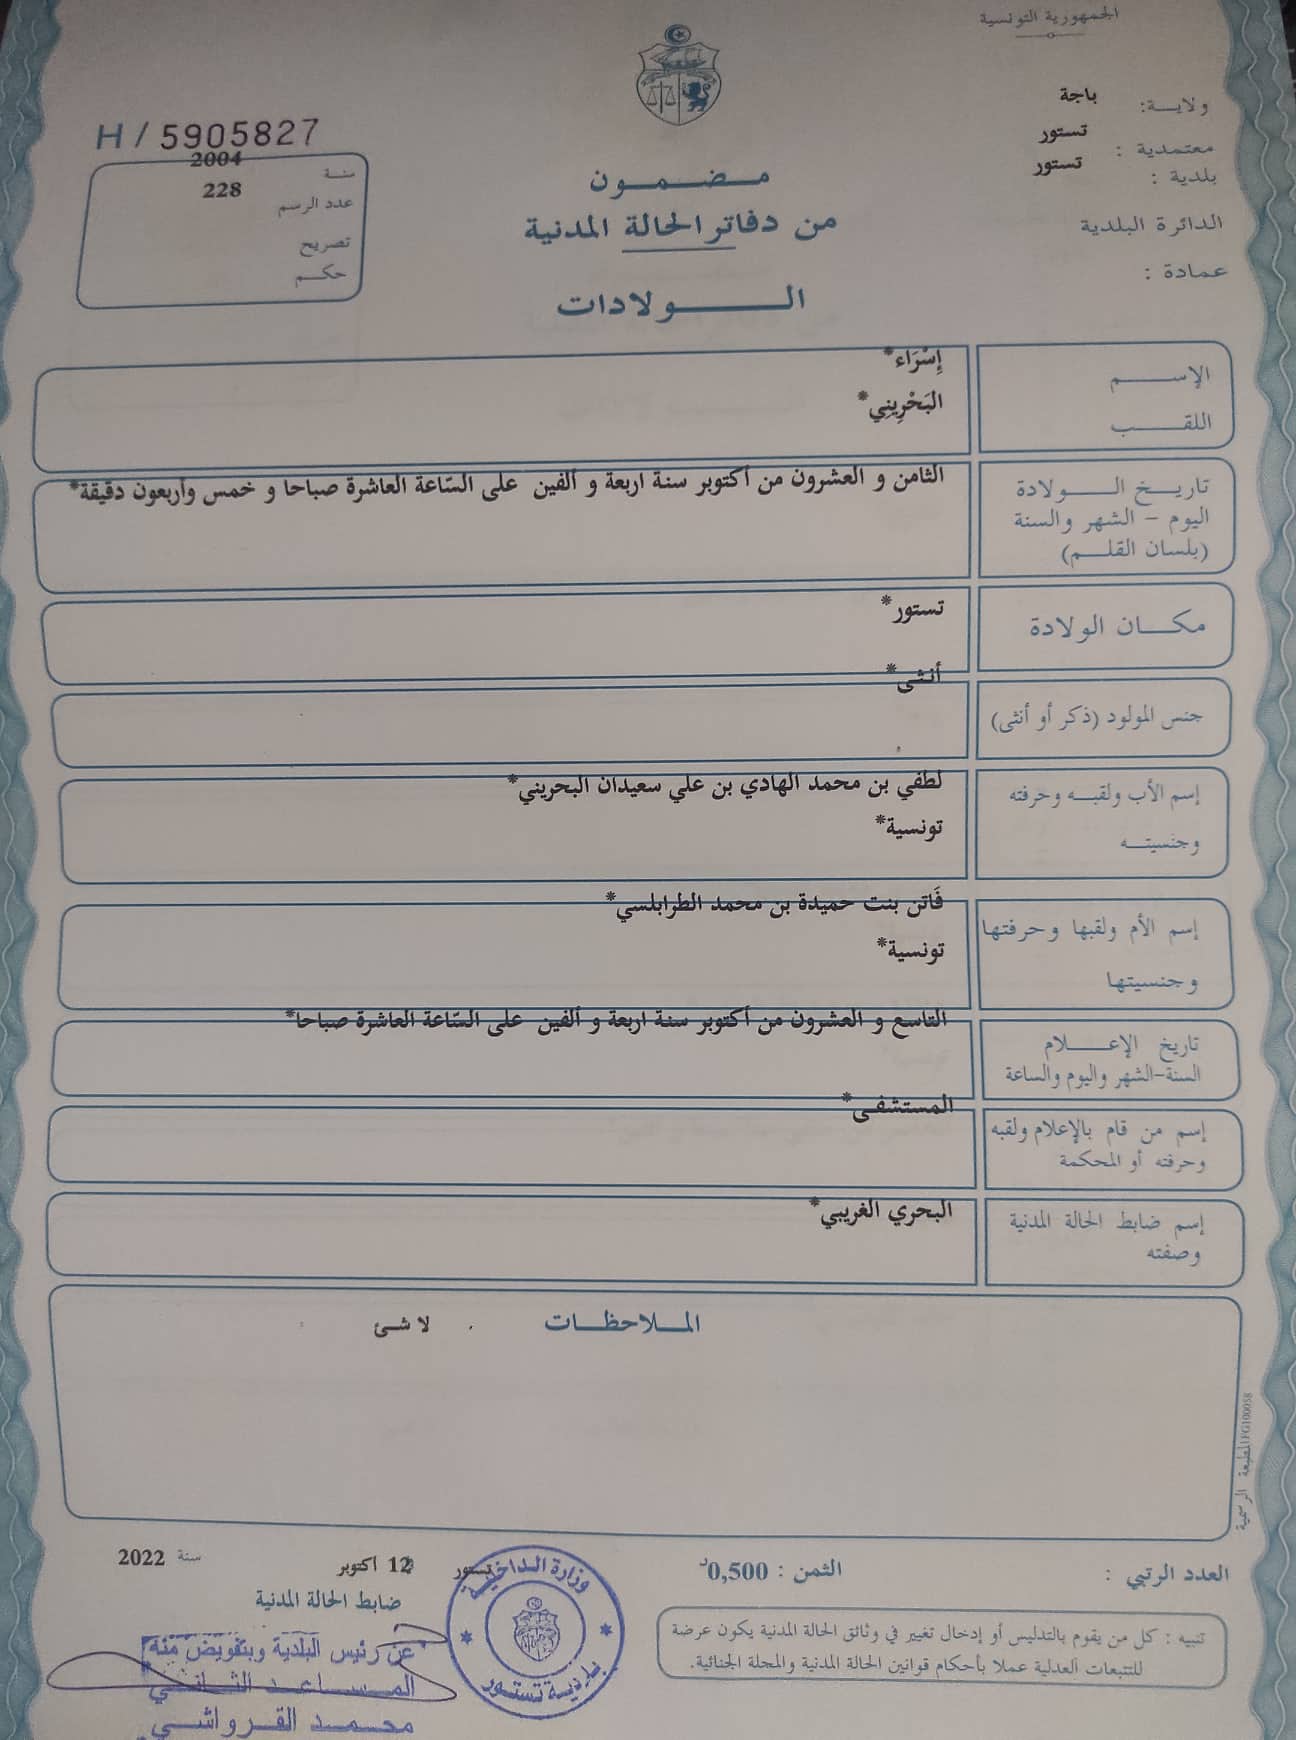 الجمهورية التونسية
ولايـــة: باجة
معتمدية : تستور
بلدية : تستور
الدائرة البلدية
عمادة :
H / 5905827
سنـة 2004
عدد الرسم 228
تصريح
حكـــم
مـــضـــمـــون
من دفاتر الحالة المدنية
الـــــولادات
الإســـــم إِسْرَاء*
اللقـــــب البَحْرِينِي*
تاريـــخ الـــــولادة
اليوم – الشهر والسنة
(بلسان القلـــم)
الثامن و العشرون من أكتوبر سنة اربعة و ألفين على السّاعة العاشرة صباحا و خمس وأربعون دقيقة*
مكـــان الولادة تستور*
جنس المولود (ذكر أو أنثى) أنثى*
إسم الأب ولقبـــه وحرفته لطفي بن محمد الهادي بن علي سعيدان البحريني*
وجنسيتـــه تونسية*
إسم الأم ولقبها وحرفتها فَاتن بنت حميدة بن محمد الطرابلسي*
وجنسيتها تونسية*
تاريخ الإعـــــلام
السنة-الشهر واليوم والساعة
التاسع و العشرون من أكتوبر سنة اربعة و ألفين على السّاعة العاشرة صباحا*
إسم من قام بالإعلام ولقبه
وحرفته أو المحكمة
المستشفى*
إسم ضابط الحالة المدنية
وصفته
البحري الغريبي*
الملاحظـــات لا شئ
المطبعة الرسمية FG100058
العدد الرتبي :
الثمن : 0,500د
تستور 12 أكتوبر سنة 2022
ضابط الحالة المدنية
تنبيه : كل من يقوم بالتدليس أو إدخال تغيير في وثائق الحالة المدنية يكون عرضة
للتتبعات العدلية عملا بأحكام قوانين الحالة المدنية والمجلة الجنائية.
وزارة الداخلية
بلدية تستور
عن رئيس البلدية وبتفويض منه
المســاعــد الثــانــي
محــمــد القــرواشــي